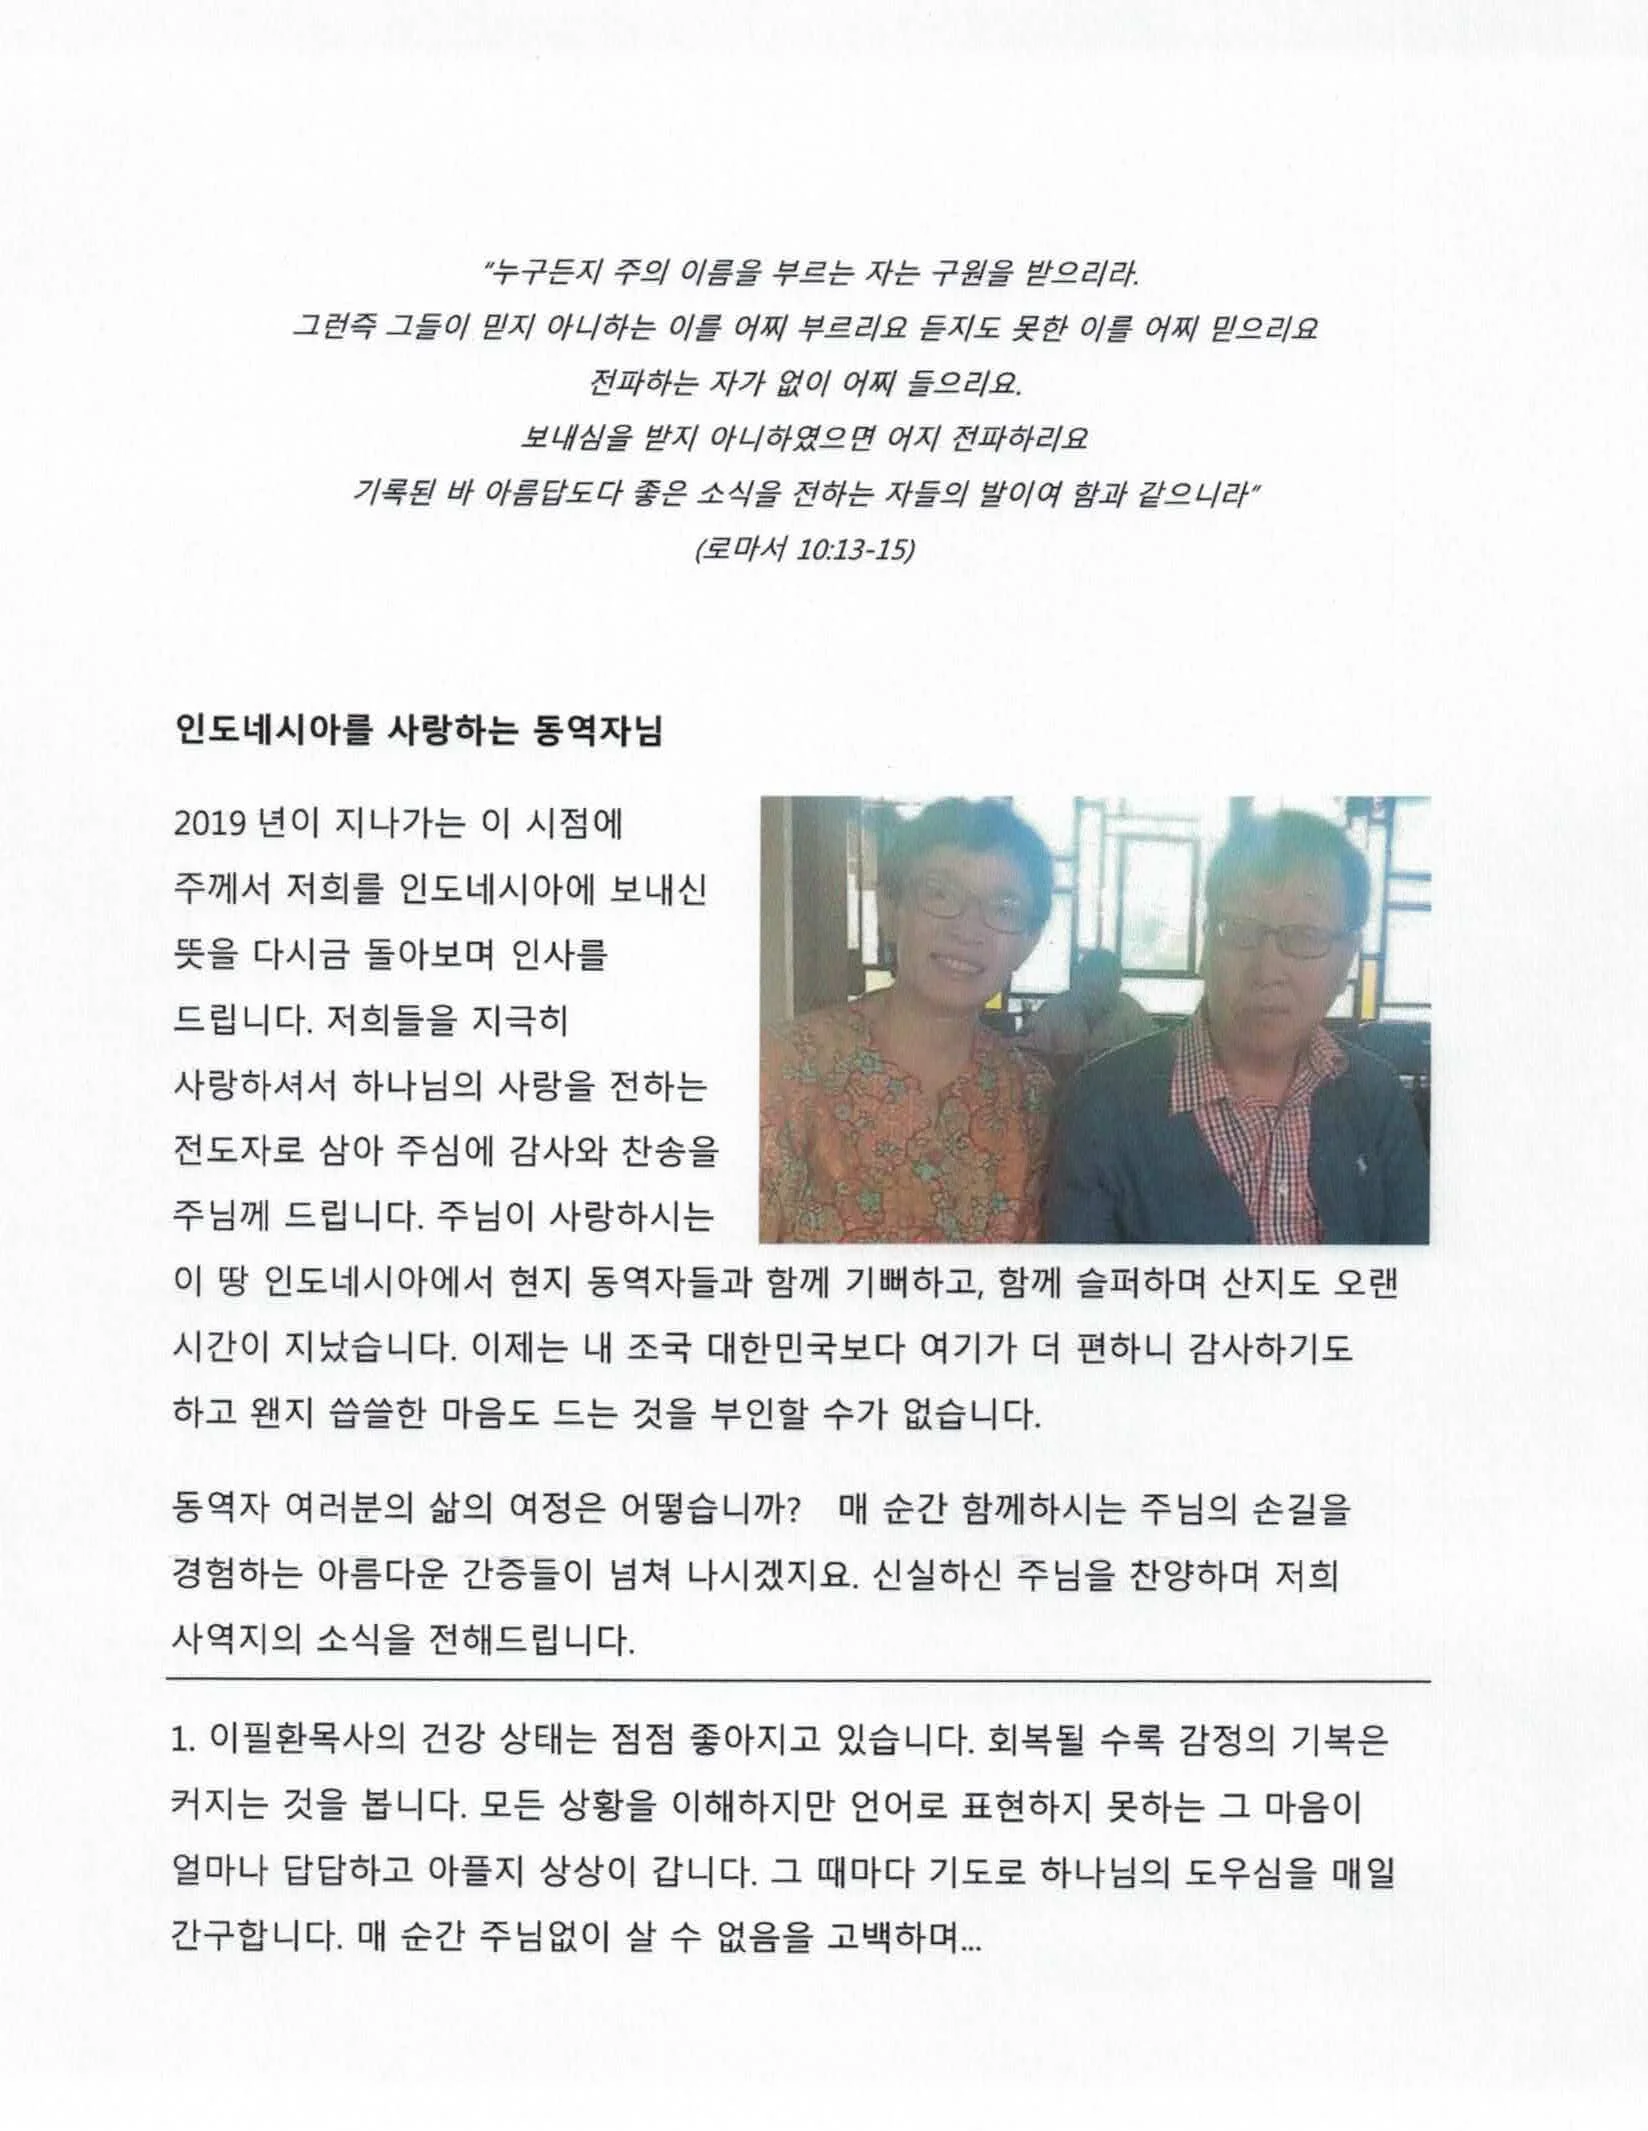 “누구든지 주의 이름을 부르는 자는 구원을 받으리라.
그런즉 그들이 믿지 아니하는 이를 어찌 부르리요 듣지도 못한 이를 어찌 믿으리요
전파하는 자가 없이 어찌 들으리요.
보내심을 받지 아니하였으면 어지 전파하리요
기록된 바 아름답도다 좋은 소식을 전하는 자들의 발이여 함과 같으니라”
(로마서 10:13-15)
인도네시아를 사랑하는 동역자님
2019 년이 지나가는 이 시점에
주께서 저희를 인도네시아에 보내신
뜻을 다시금 돌아보며 인사를
드립니다. 저희들을 지극히
사랑하셔서 하나님의 사랑을 전하는
전도자로 삼아 주심에 감사와 찬송을
주님께 드립니다. 주님이 사랑하시는
이 땅 인도네시아에서 현지 동역자들과 함께 기뻐하고, 함께 슬퍼하며 산지도 오랜
시간이 지났습니다. 이제는 내 조국 대한민국보다 여기가 더 편하니 감사하기도
하고 왠지 씁쓸한 마음도 드는 것을 부인할 수가 없습니다.
동역자 여러분의 삶의 여정은 어떻습니까? 매 순간 함께하시는 주님의 손길을
경험하는 아름다운 간증들이 넘쳐 나시겠지요. 신실하신 주님을 찬양하며 저희
사역지의 소식을 전해드립니다.
1. 이필환목사의 건강 상태는 점점 좋아지고 있습니다. 회복될 수록 감정의 기복은
커지는 것을 봅니다. 모든 상황을 이해하지만 언어로 표현하지 못하는 그 마음이
얼마나 답답하고 아플지 상상이 갑니다. 그 때마다 기도로 하나님의 도우심을 매일
간구합니다. 매 순간 주님없이 살 수 없음을 고백하며...